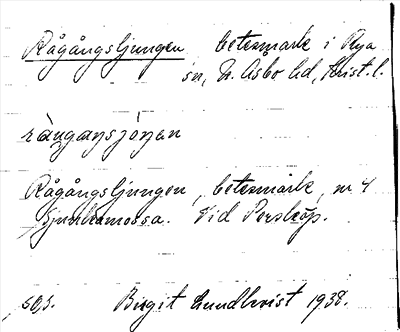 Rågångsljungen betesmark i Rya
sn, N. Åsbo hd, Krist. l.
rågaŋsjöŋan
Rågångsljungen, betesmark, nr 4
Ljunhamossa. Vid Perstorp.
Birgit Lundkvist 1938.